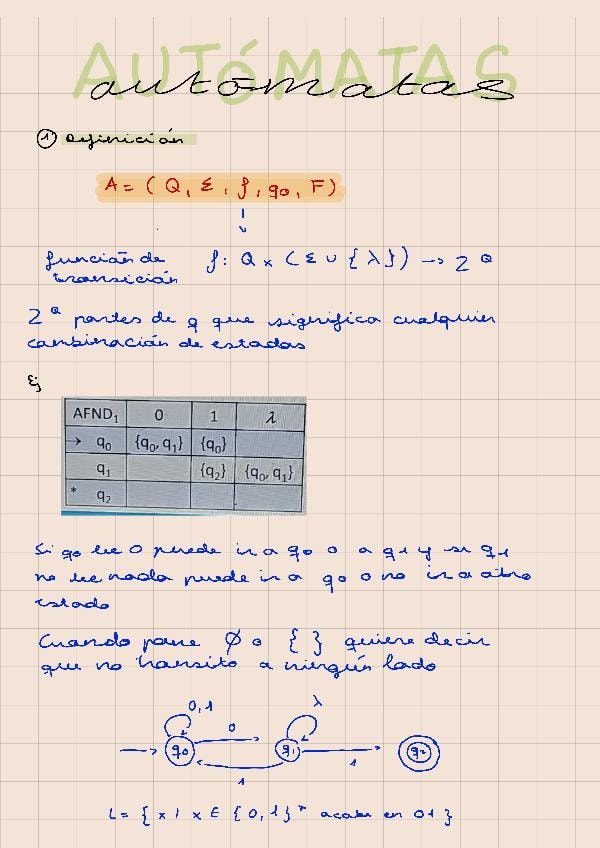 AUTÓMATAS
autómatas
① Definición
A = ( Q, Σ, f, q0, F )
función de transición f: Q × ( Σ ∪ { λ } ) → 2^Q
2^Q partes de q que significa cualquier
combinación de estados
Ej
AFND₁ 0 1 λ
→ q₀ {q₀, q₁} {q₀}
q₁ {q₂} {q₀, q₁}
* q₂
Si q0 lee 0 puede ir a q0 o a q1 y si q1
no lee nada puede ir a q0 o no ir a otro
estado
Cuando pone ∅ o { } quiere decir
que no transito a ningún lado
0,1 λ
0
q0 q1 q2
1 1
L = { x / x ∈ {0,1}* acabe en 01 }